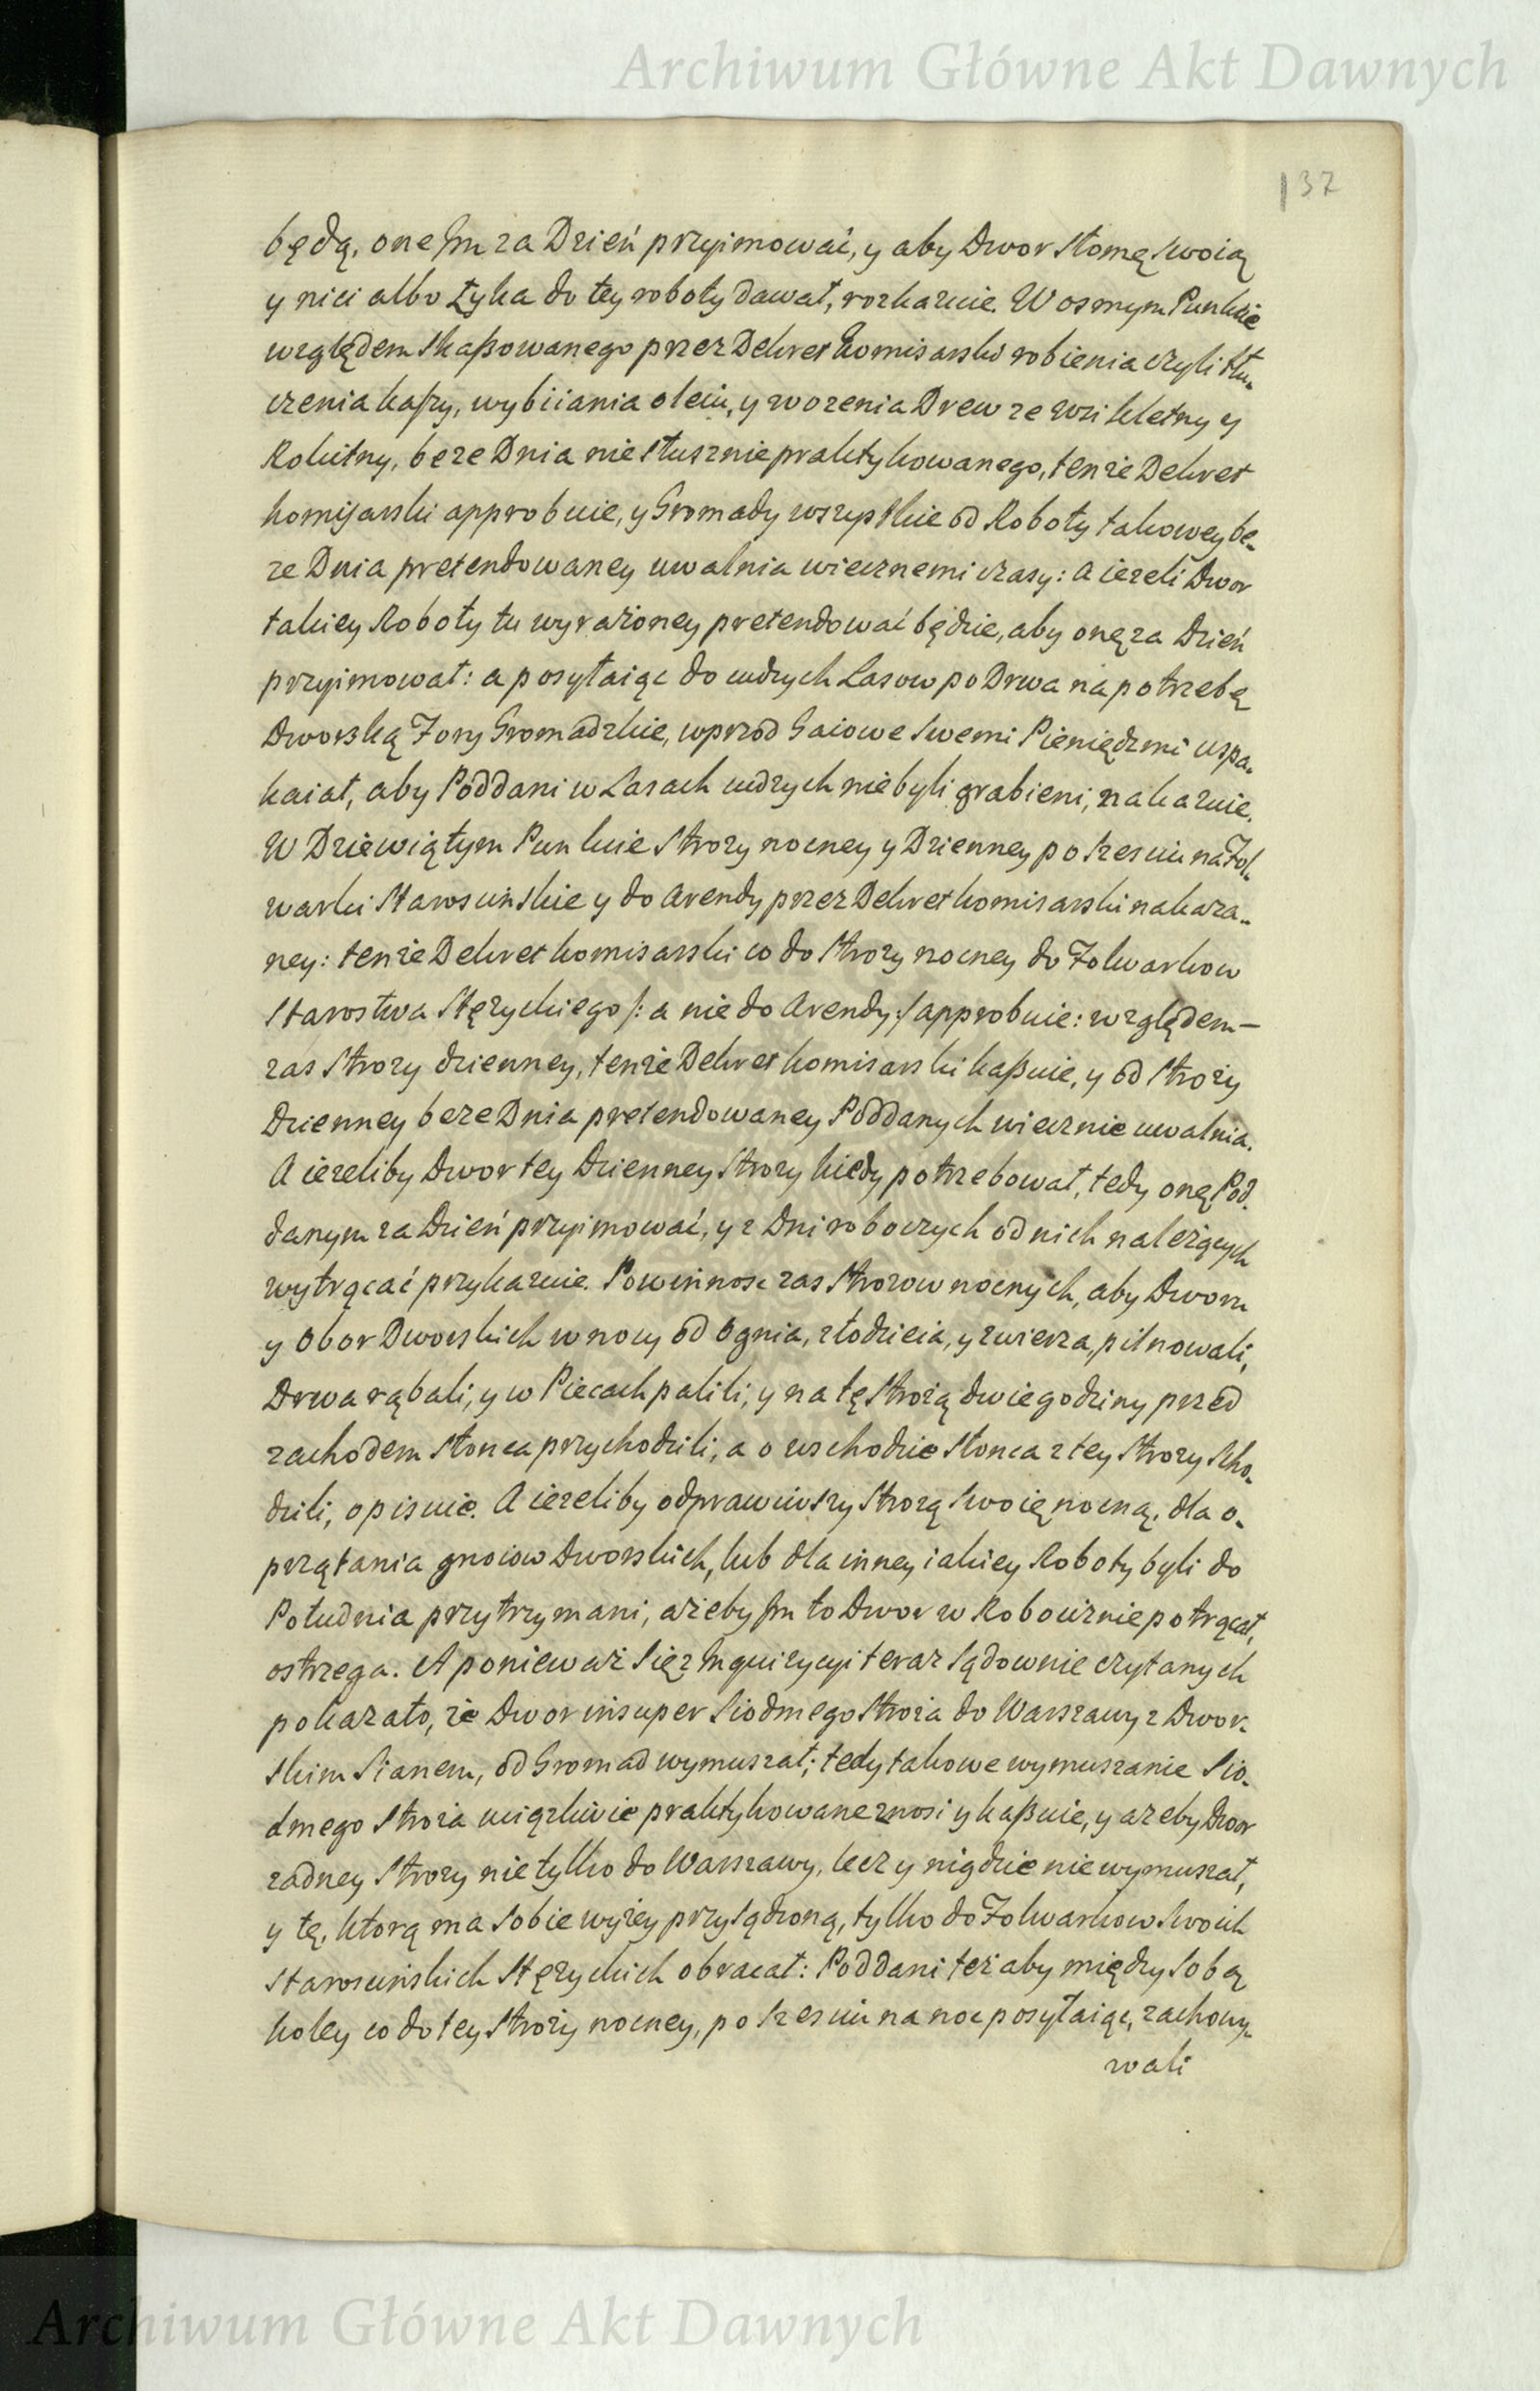 Archiwum Główne Akt Dawnych
137
będą, one Jm za Dzień przyimować, y aby Dwor Słomę swoią
y nici albo Łyka do tey roboty dawał, rozkazuie. W osmym Punkcie
względem skaßowanego przez Dekret Komisarski robienia czyli tłu-
czenia kaszy, wybiiania oleiu, y wożenia Drew ze wsi Kletny y
Rokitny, beze Dnia niesłusznie praktykowanego, tenże Dekret
komisarski approbuie, y Gromady wszystkie od Roboty takowey be-
ze Dnia pretendowaney uwalnia wiecznemi czasy: A ieżeli Dwor
takiey Roboty tu wyrażoney pretendować będzie, aby onę za Dzień
przyimował: a posyłaiąc do cudzych Lasow po Drwa na potrzebę
Dworską Fory Gromadzkie, wprzod Gaiowe swemi Pieniędzmi uspa-
kaiał, aby Poddani w Lasach cudzych nie byli grabieni, nakazuie.
W Dziewiątym Punkcie Stroży nocney y Dzienney po Szesciu na Fol-
warki Starościńskie y do Arendy przez Dekret komisarski nakaza-
ney: tenże Dekret komisarski co do Stroży nocney do Folwarkow
Starostwa Stężyckiego /: a nie do Arendy :/ approbuie: względem
zas Stroży dzienney, tenże Dekret komisarski kaßuie, y od Stroży
Dzienney beze Dnia pretendowaney Poddanych wiecznie uwalnia.
A ieżeliby Dwor tey Dzienney Stroży kiedy potrzebował, tedy onę Pod-
danym za Dzień przyimować, y z Dni roboczych od nich należących
wytrącać przykazuie. Powinnosc zas Strozow nocnych, aby Dworu
y Obor Dworskich w nocy od Ognia, złodzieia, y zwierza, pilnowali,
Drwa rąbali, y w Piecach palili, y na tę Strożą dwie godziny przed
zachodem Słonca przychodzili, a o wschodzie Słonca z tey Stroży scho-
dzili, opisuie. A ieżeliby odprawiwszy Strożą swoię nocną, dla o-
przątania gnoiow Dworskich, lub dla inney iakiey Roboty byli do
Południa przytrzymani, ażeby Jm to Dwor w Robociznie potrącał,
ostrzega. A ponieważ się z Inquizycyi teraz Sądownie czytanych
pokazało, że Dwor insuper Siodmego Stroża do Warszawy z Dwor-
skim Sianem, od Gromad wymuszał; tedy takowe wymuszanie Sio-
dmego Stroża uciążliwie praktykowane znosi y kaßuie, y ażeby Dwor
żadney Stroży nietylko do Warszawy, lecz y nigdzie nie wymuszał,
y tę, ktorą ma sobie wyżey przysądzoną, tylko do Folwarkow swoich
Starościńskich Stężyckich obracał: Poddani też aby między sobą
koley co do tey Stroży nocney, po Szesciu na noc posyłaiąc, zachowy-
wali
Archiwum Główne Akt Dawnych